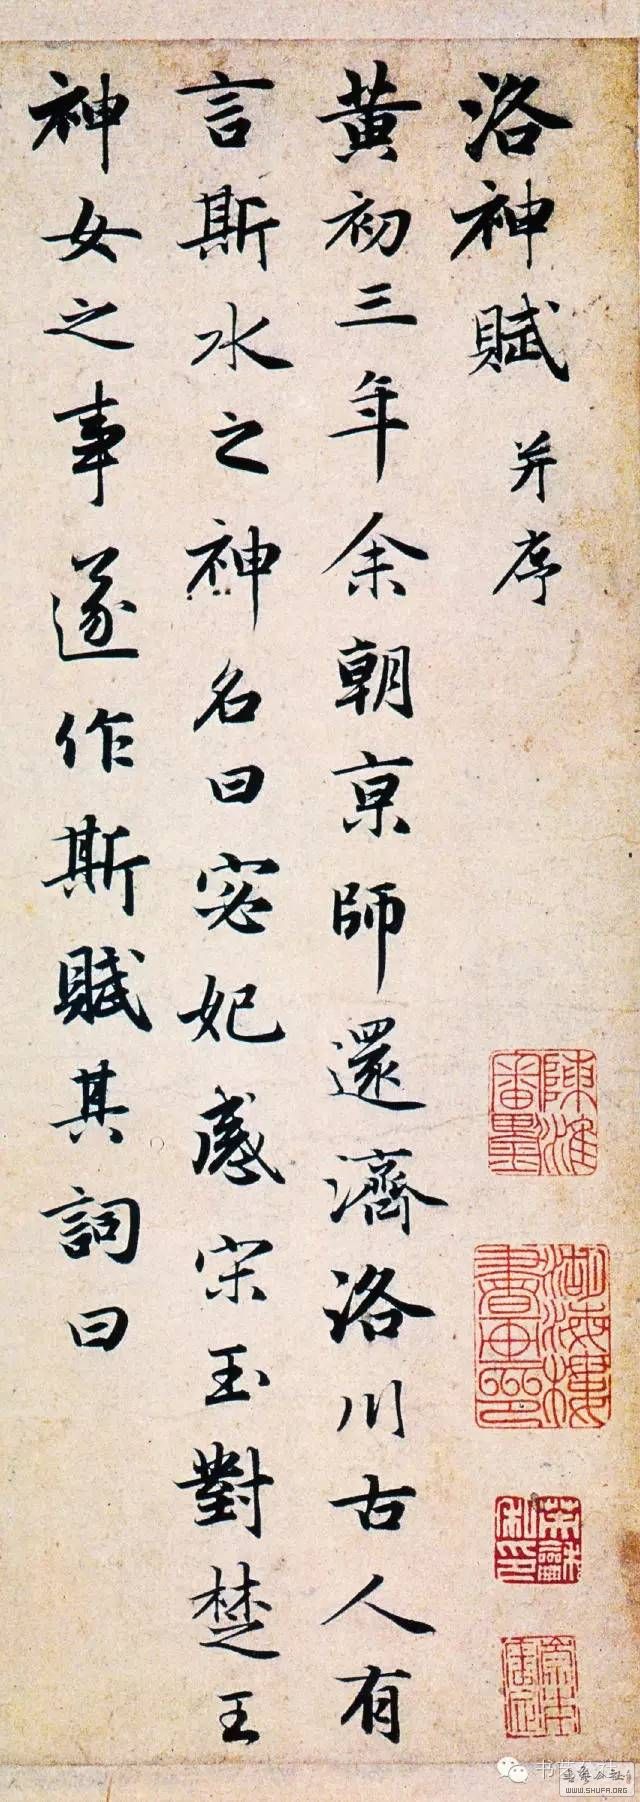 洛神賦 并序
黃初三年余朝京師還濟洛川古人有
言斯水之神名曰宓妃感宋玉對楚王
神女之事遂作斯賦其詞曰
WWW.SHUFA.ORG